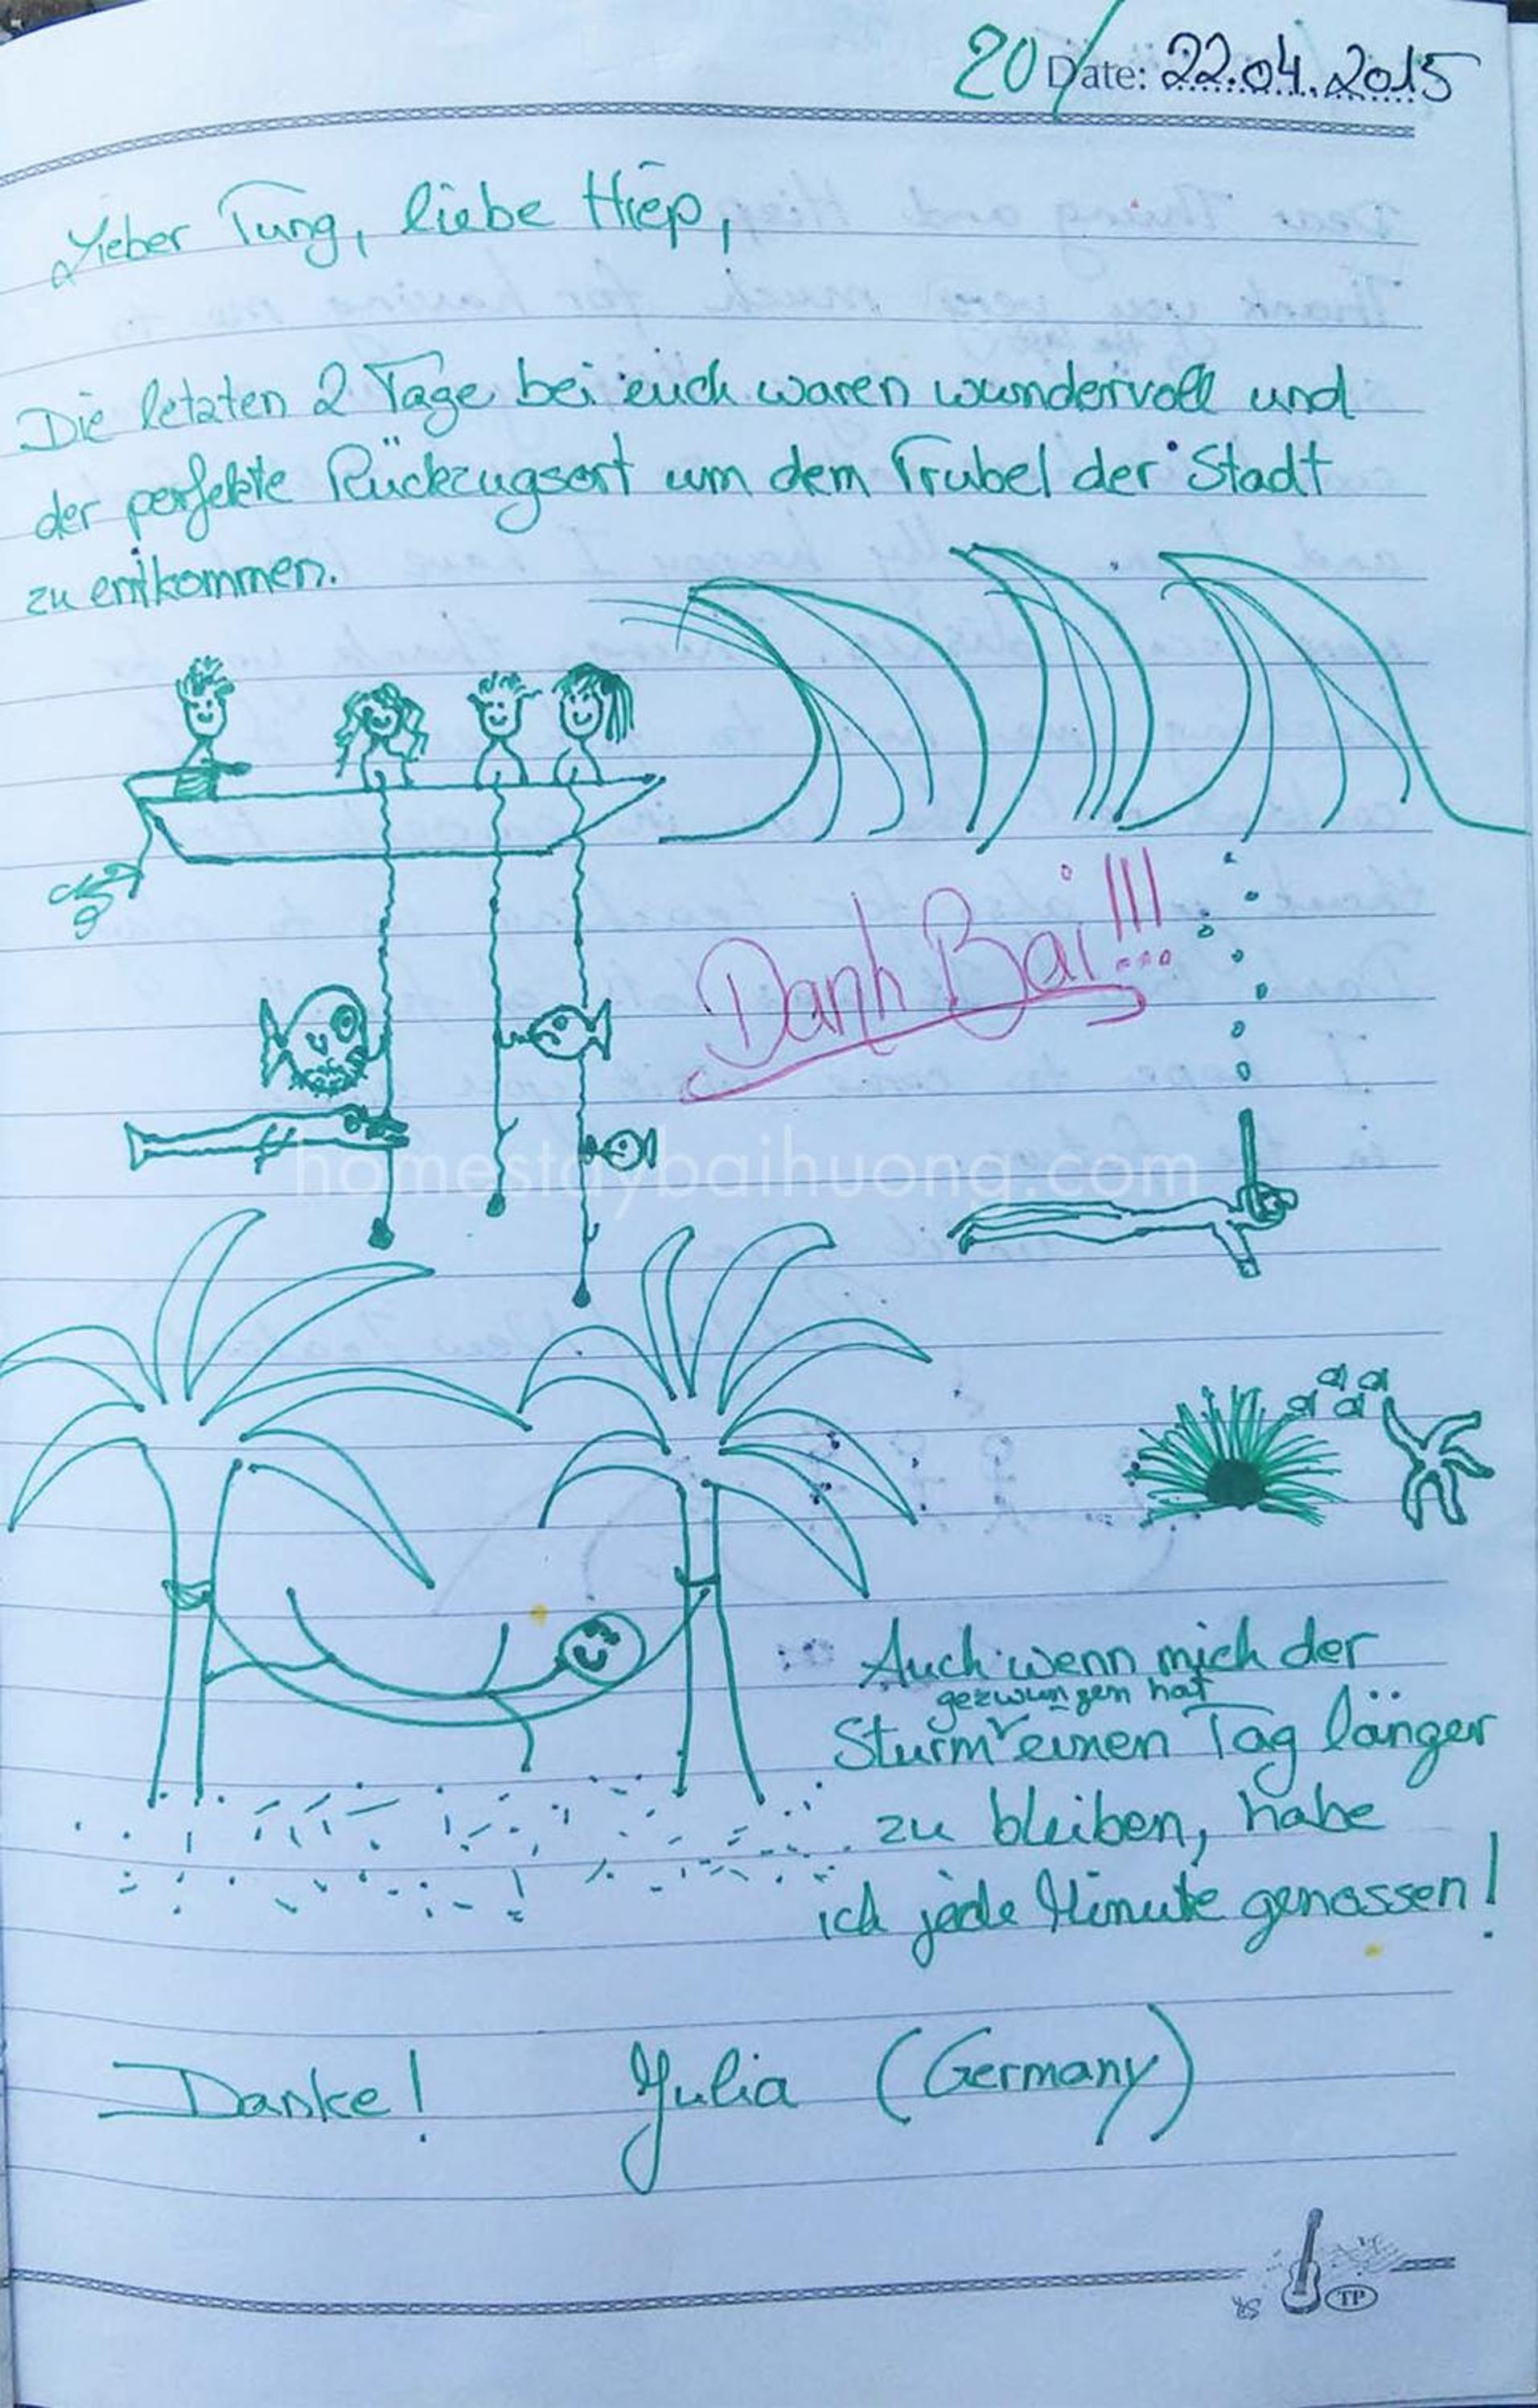 20/ Date: 22.04.2015
Lieber Tung, liebe Hiep,
Die letzten 2 Tage bei euch waren wundervoll und
der perfekte Rückzugsort um dem Trubel der Stadt
zu entkommen.
Danh Bai!!!
homestaybaihuong.com
Auch wenn mich der
gezwungen hat
Sturm einen Tag länger
zu bleiben, habe
ich jede Minute genossen!
Danke! Julia (Germany)
TP